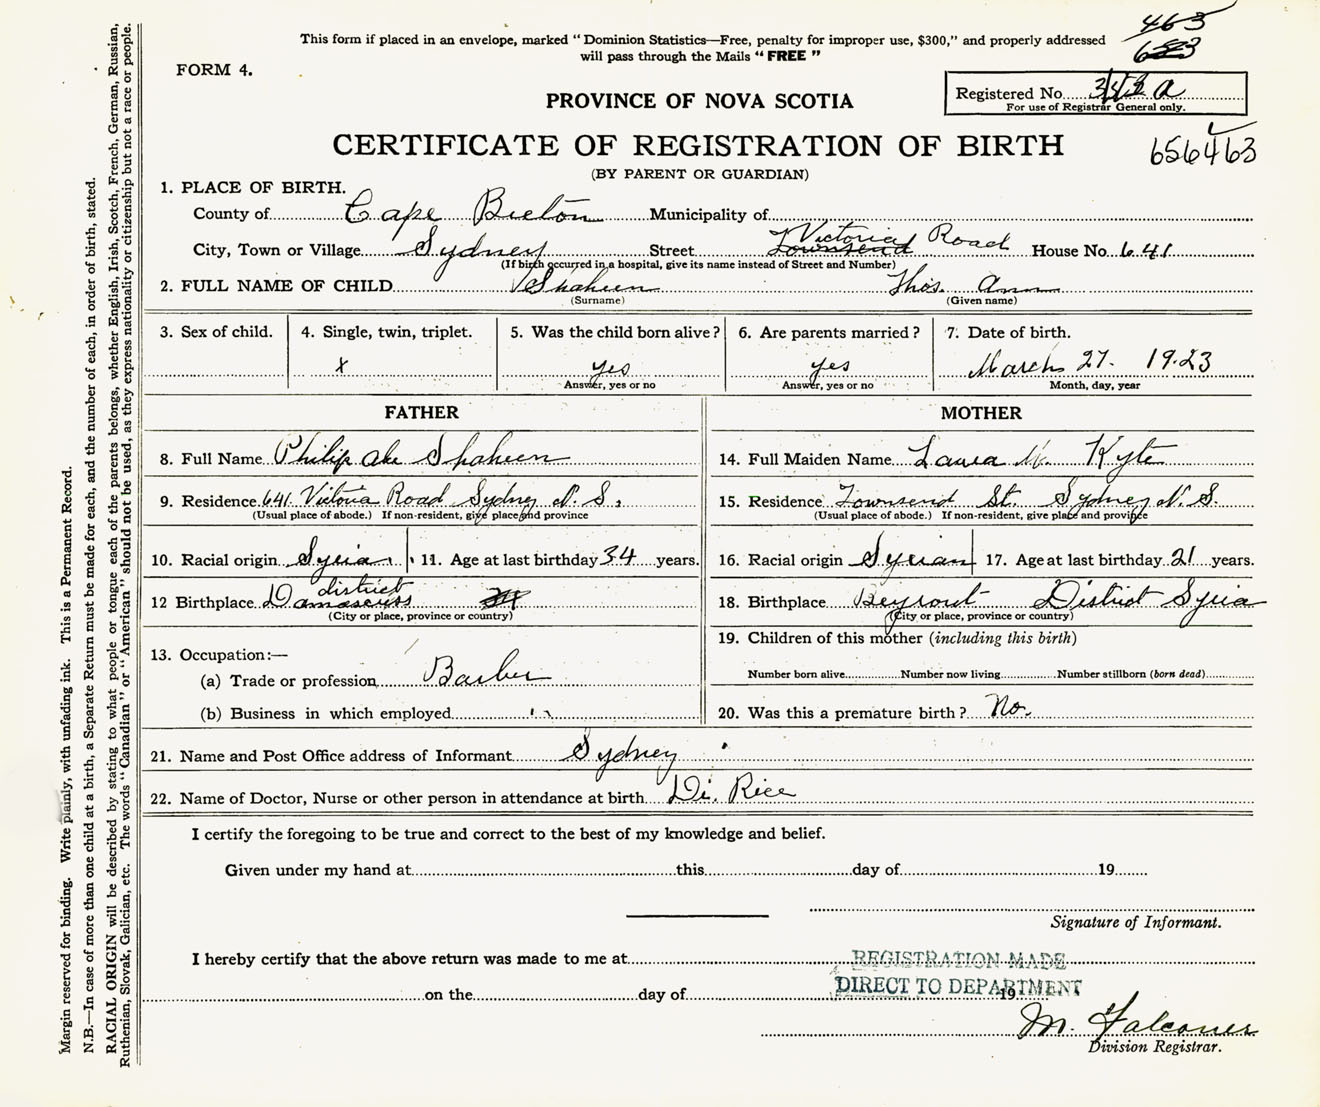 This form if placed in an envelope, marked "Dominion Statistics—Free, penalty for improper use, $300," and properly addressed
will pass through the Mails "FREE"
463
FORM 4.
Registered No.
For use of Registrar General only.
PROVINCE OF NOVA SCOTIA
CERTIFICATE OF REGISTRATION OF BIRTH
656463
(BY PARENT OR GUARDIAN)
1. PLACE OF BIRTH.
County of Cape Breton Municipality of
City, Town or Village Sydney Street Townsend Victoria Road House No. 641
(If birth occurred in a hospital, give its name instead of Street and Number)
2. FULL NAME OF CHILD Shaheen Thos. Ann
(Surname) (Given name)
3. Sex of child. 4. Single, twin, triplet. 5. Was the child born alive? 6. Are parents married? 7. Date of birth.
x yes yes March 27. 1923
Answer, yes or no Answer, yes or no Month, day, year
FATHER MOTHER
8. Full Name Philip Abe Shaheen
14. Full Maiden Name Laura M. Kyte
9. Residence 641 Victoria Road Sydney N. S.
(Usual place of abode.) If non-resident, give place and province
15. Residence Townsend St. Sydney N. S.
(Usual place of abode.) If non-resident, give place and province
10. Racial origin Syrian 11. Age at last birthday 34 years.
16. Racial origin Syrian 17. Age at last birthday 21 years.
12 Birthplace Damascus district
(City or place, province or country)
18. Birthplace Beyrout District Syria
(City or place, province or country)
13. Occupation:—
(a) Trade or profession Barber
(b) Business in which employed
19. Children of this mother (including this birth)
Number born alive Number now living Number stillborn (born dead)
20. Was this a premature birth? No.
21. Name and Post Office address of Informant Sydney
22. Name of Doctor, Nurse or other person in attendance at birth Dr. Rice
I certify the foregoing to be true and correct to the best of my knowledge and belief.
Given under my hand at this day of 19
Signature of Informant.
I hereby certify that the above return was made to me at
REGISTRATION MADE
DIRECT TO DEPARTMENT
on the day of 19
M. Falconer
Division Registrar.
Margin reserved for binding. Write plainly, with unfading ink. This is a Permanent Record.
N.B.—In case of more than one child at a birth, a Separate Return must be made for each, and the number of each, in order of birth, stated.
RACIAL ORIGIN will be described by stating to what people or tongue each of the parents belongs, whether English, Irish, Scotch, French, German, Russian,
Ruthenian, Slovak, Galician, etc. The words "Canadian" or "American" should not be used, as they express nationality or citizenship but not a race or people.